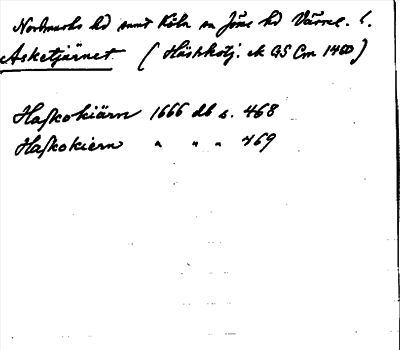 Nordmarks hd samt Köla sn Jösse hd Värml. l.
Asketjärnet (Häskkotj. ek GS Cm 1460)
Haſkokiärn 1666 db s. 468
Haſkokiern " " " 469